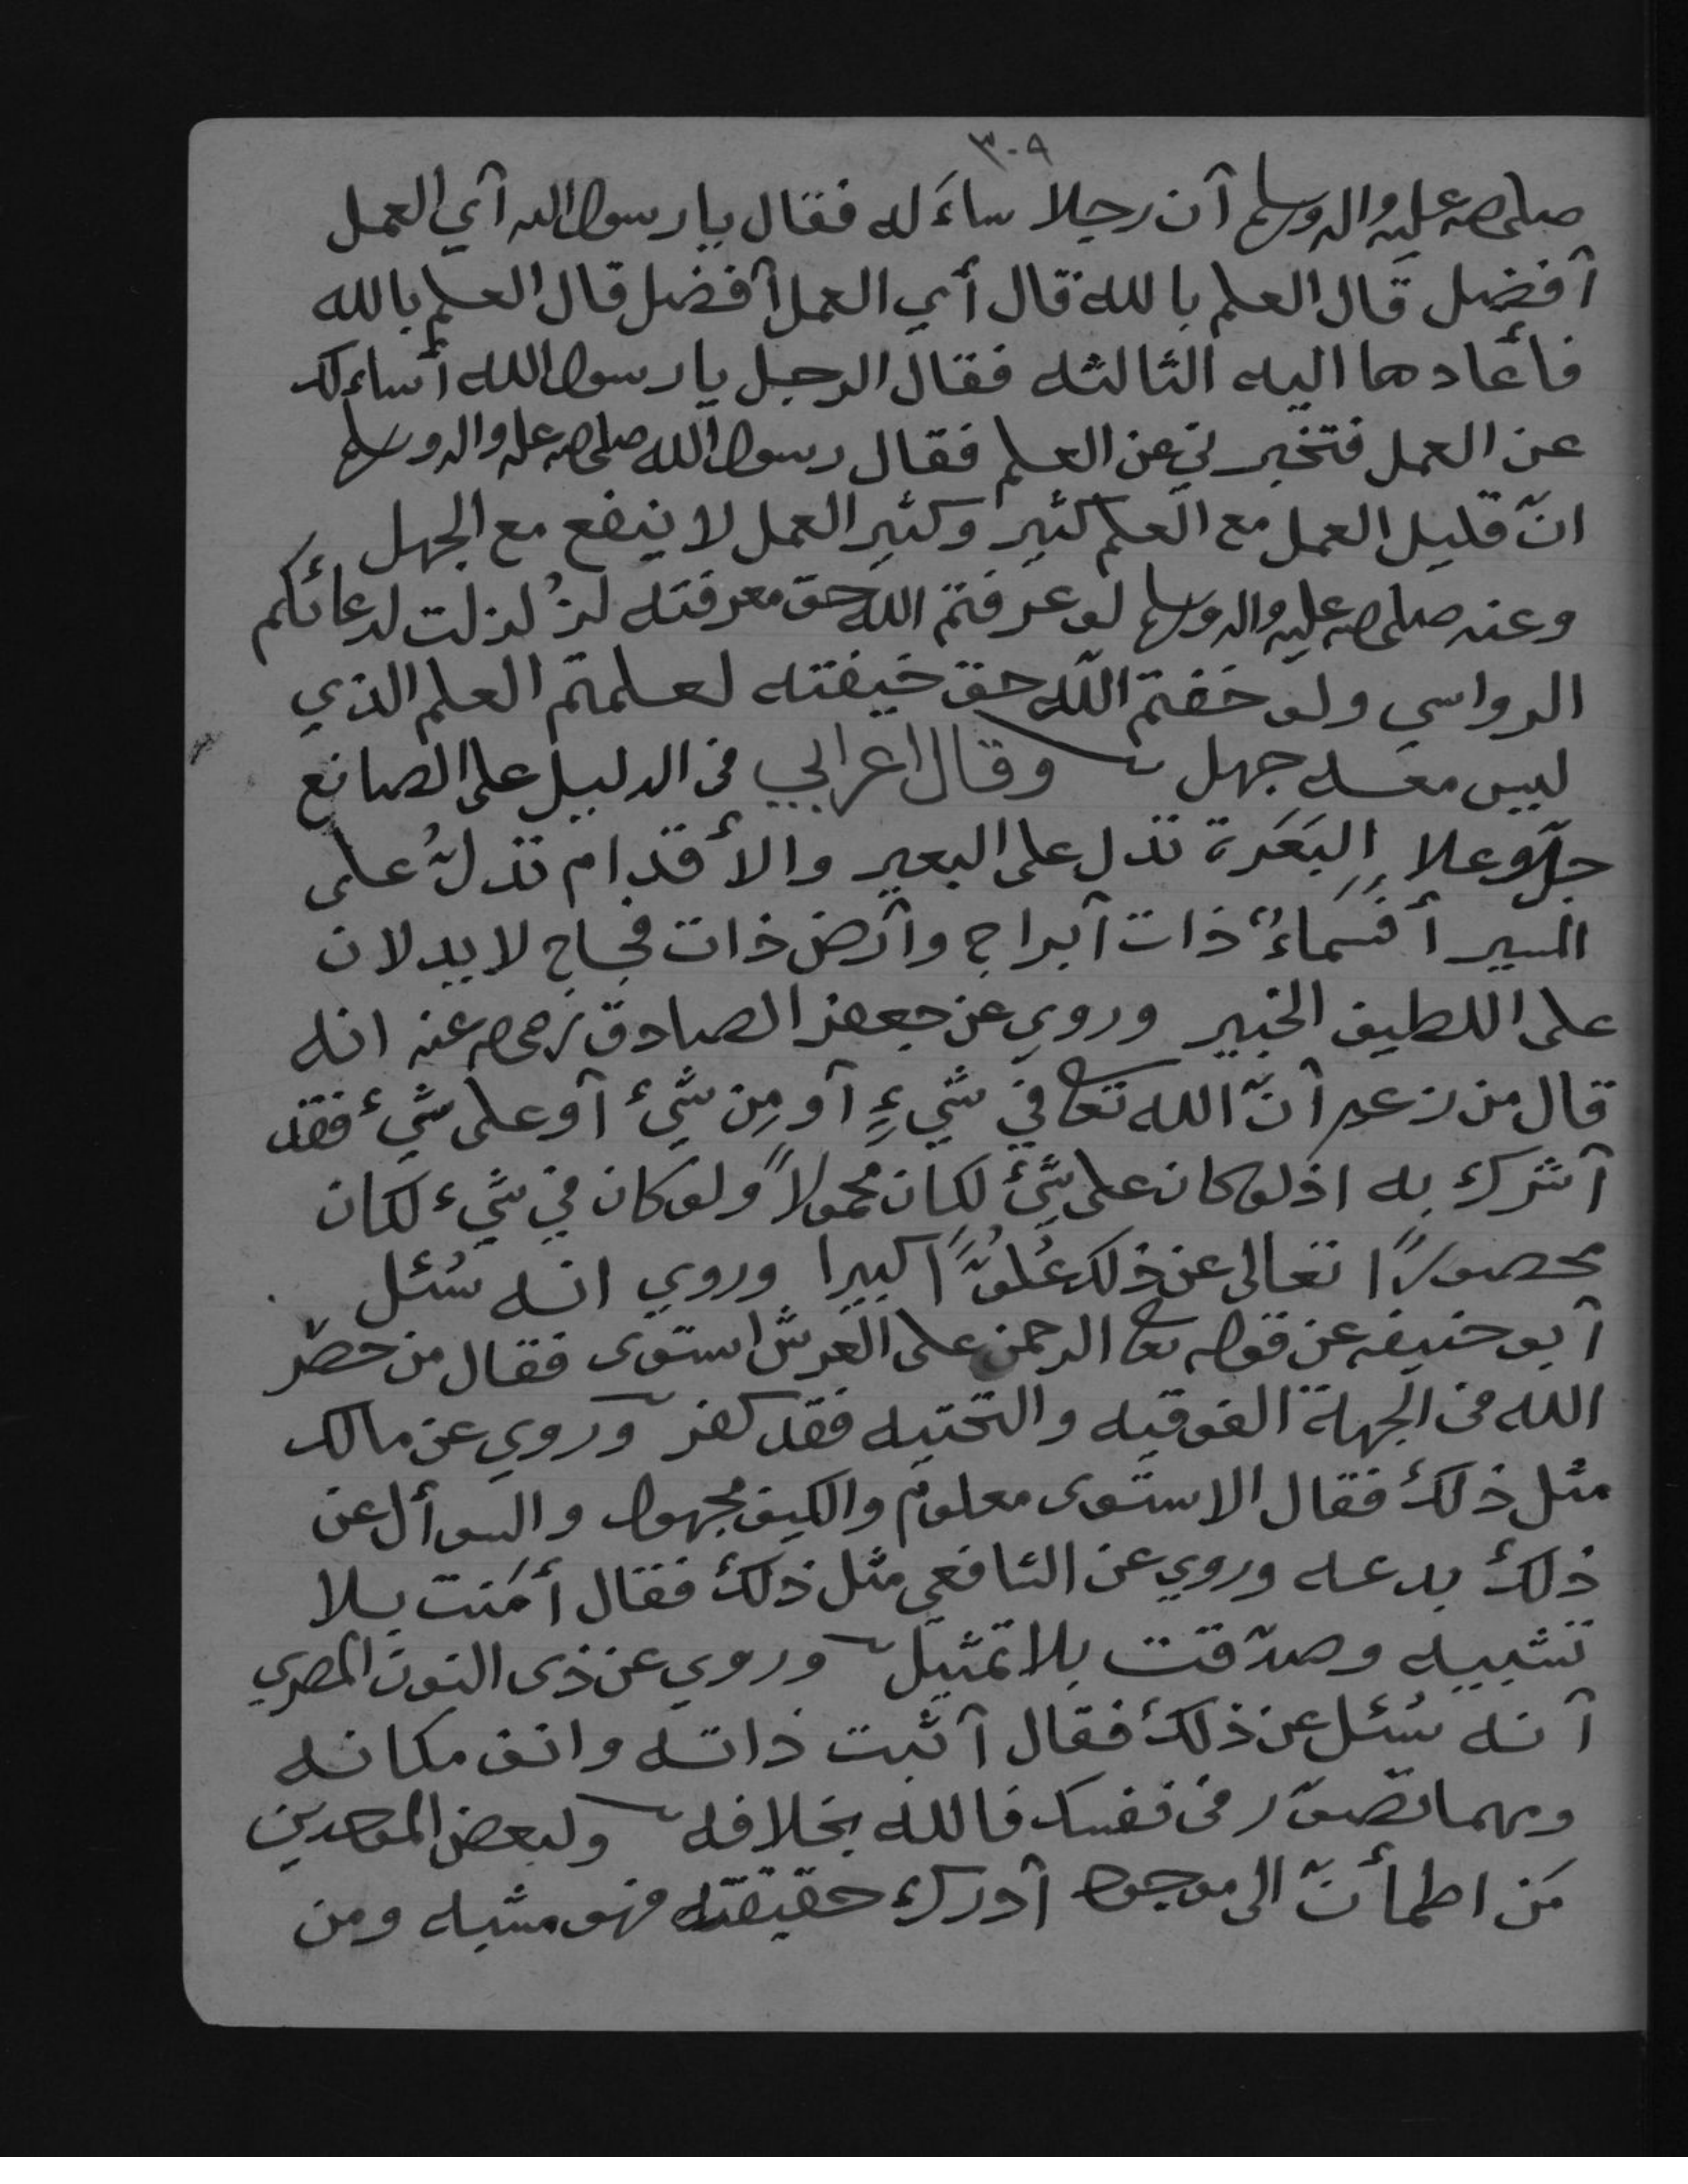 ٣٠٩
صلى الله عليه واله وسلم آن رجلا ساءَله فقال يا رسول الله آي العمل
آفضل قال العلم بالله قال أي العمل آفضل قال العلم بالله
فأعادها اليه الثالثه فقال الرجل يا رسول الله أساءلك
عن العمل فتخبرني عن العلم فقال رسول الله صلى الله عليه واله وسلم
انّ قليل العمل مع العلم كثير وكثير العمل لا ينفع مع الجهل
وعنه صلى الله عليه واله وسلم لو عرفتم الله حق معرفته لزُلزلت لدعائكم
الرواسي ولو خفتم الله حق خيفته لعلمتم العلم الذي
ليس معه جهل وقال اعرابي في الدليل على الصانع
جلّ وعلا البَعَرة تدل على البعير والأقدام تدلُّ على
المسير أفَسَماءٌ ذات آبراج وآرض ذات فجاج لا يدلان
على اللطيف الخبير وروي عن جعفر الصادق رضي الله عنه انه
قال من زعم آنّ الله تعالى في شيءٍ آو مِن شيء آو على شيء فقد
آشرك به اذ لو كان على شيء لكان محمولاً ولو كان في شيء لكان
محصورًا تعالى عن ذلك عُلوًّا كبيرا وروي انه سُئل
آبو حنيفه عن قوله تعالى الرحمن على العرش استوى فقال من حصر
الله في الجهة الفوقيه والتحتيه فقد كفر وروي عن مالك
مثل ذلك فقال الاستوى معلوم والكيف مجهول والسوأل عن
ذلك بدعه وروي عن الشافعي مثل ذلك فقال أمَنت بلا
تشبيه وصدّقت بلا تمثيل وروي عن ذى النون المصري
آنه سُئل عن ذلك فقال آثبت ذاته وانف مكانه
ومهما تصوّر في نفسك فالله بخلافه ولبعض الموحدين
مَن اطمأنّ الى موجود آدرك حقيقته فهو مشبه ومن